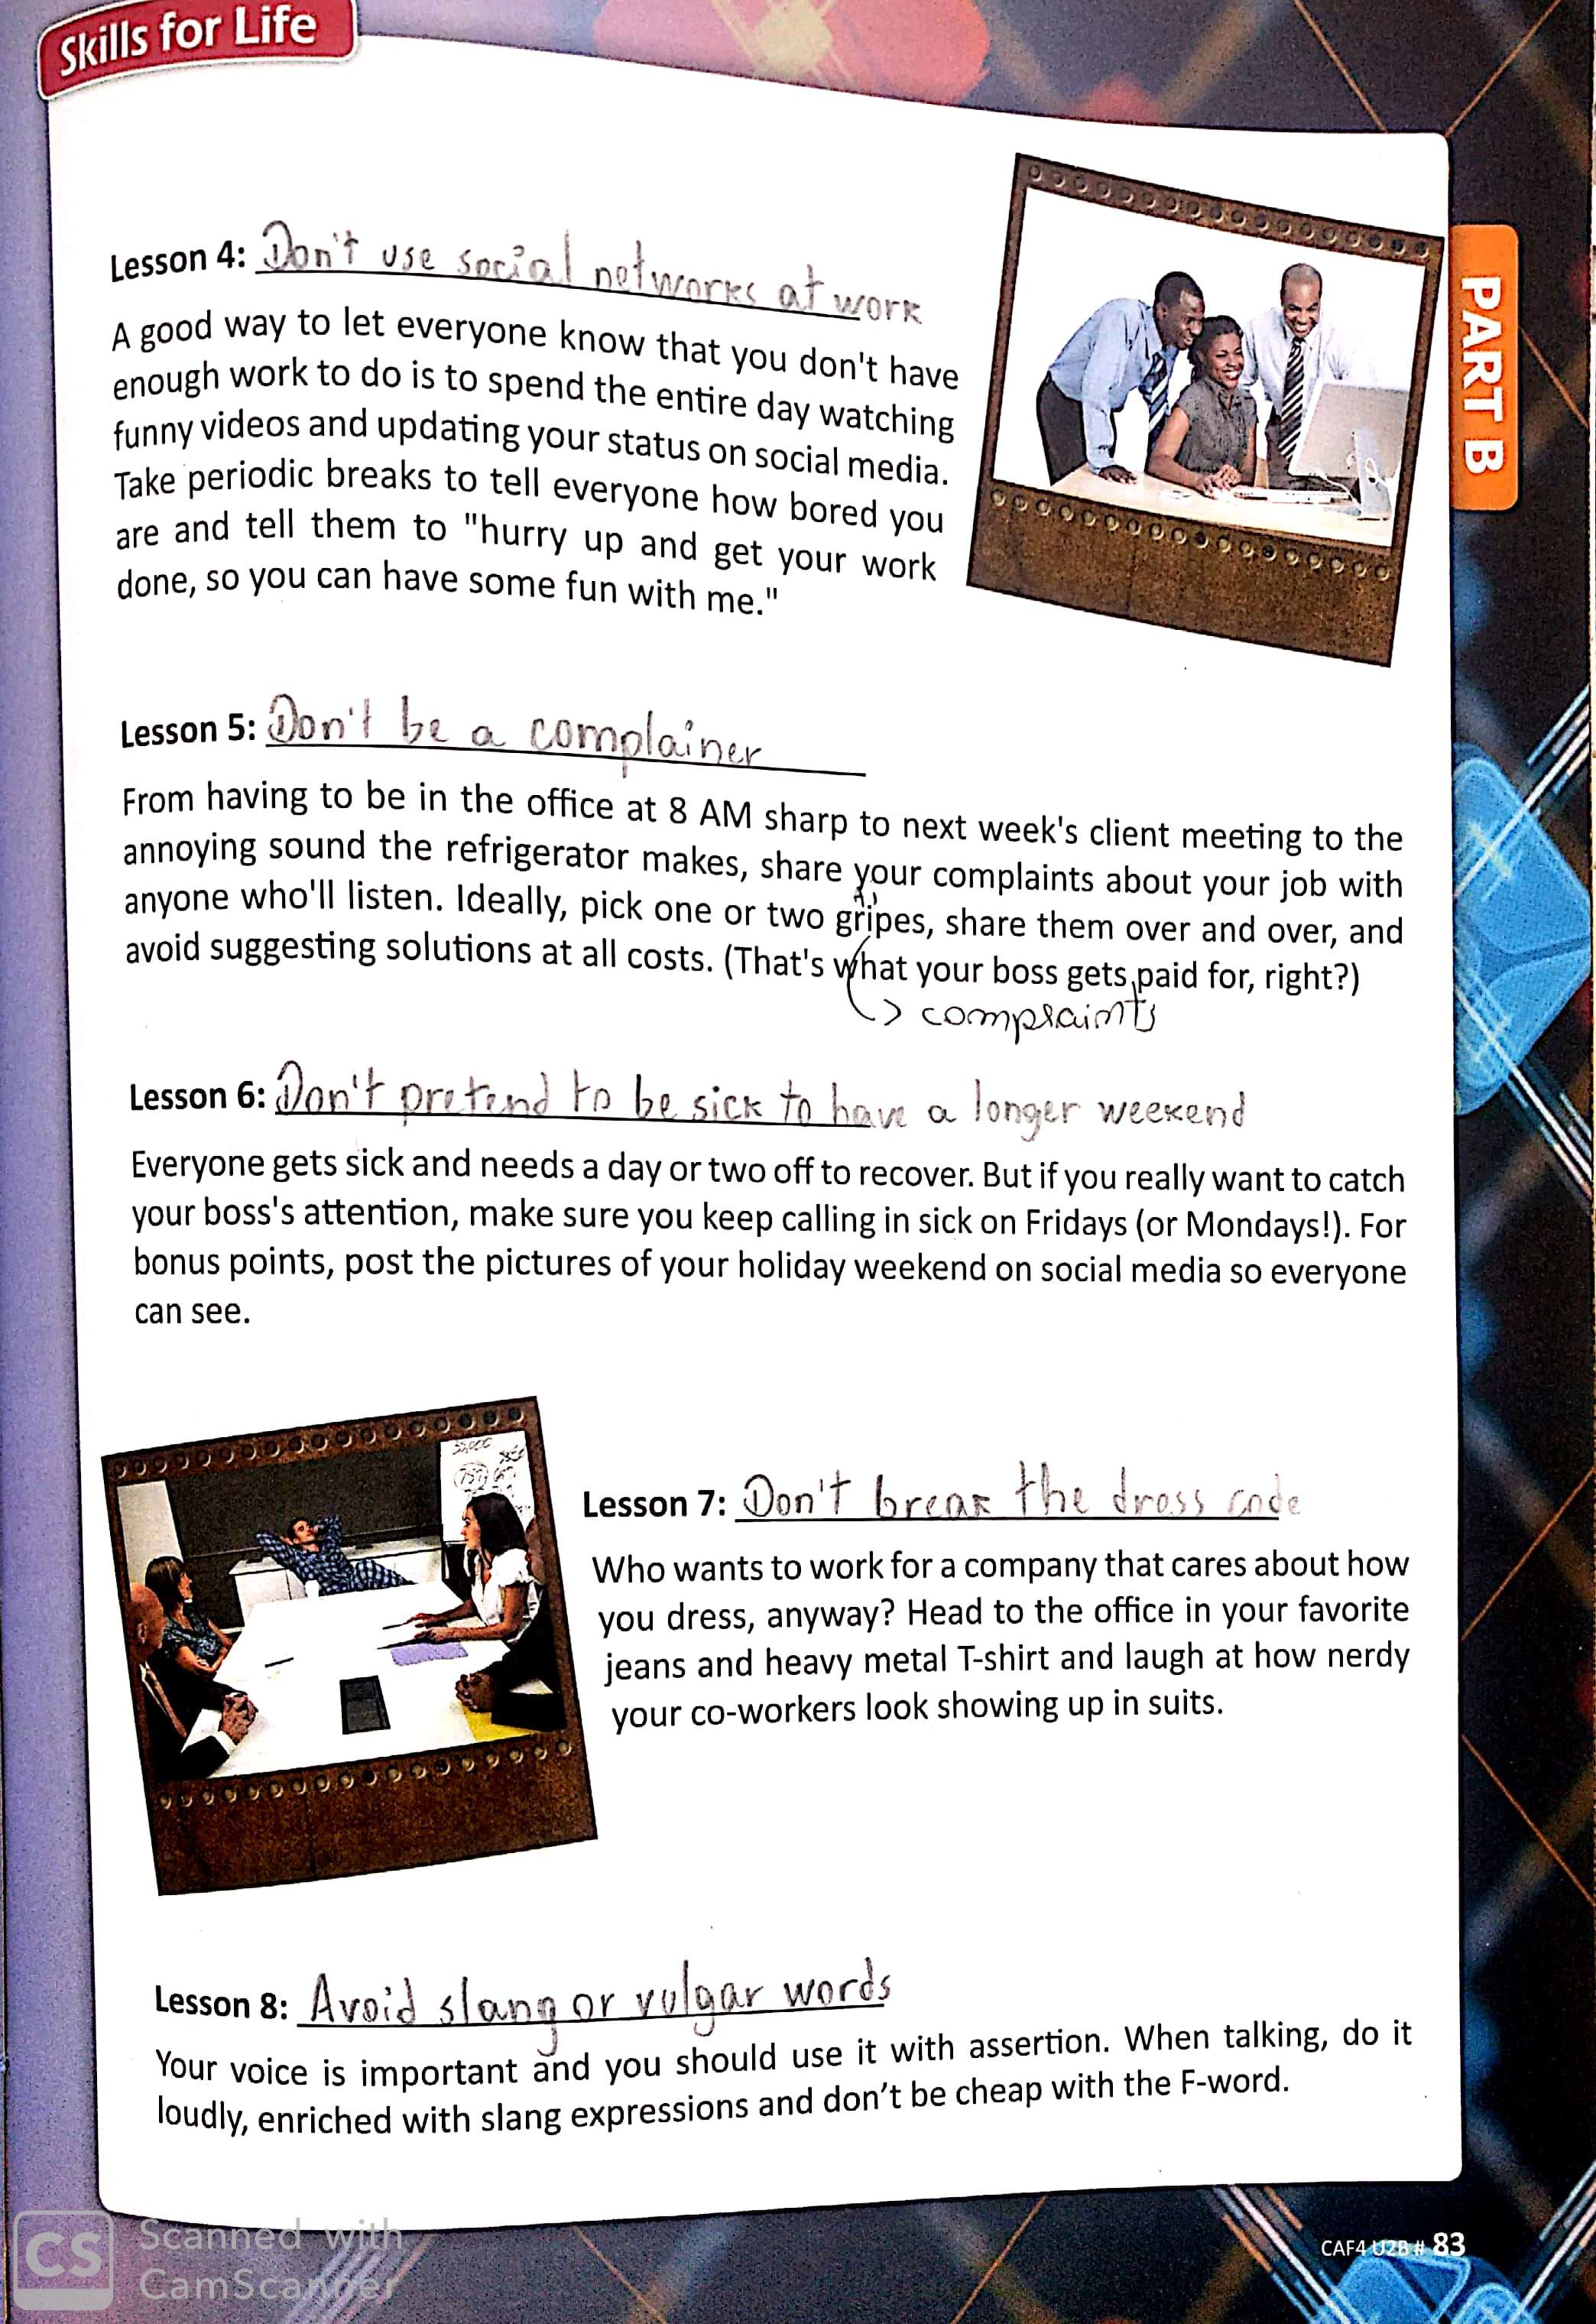 Skills for Life
PART B
Lesson 4: Don't use social networks at work
A good way to let everyone know that you don't have
enough work to do is to spend the entire day watching
funny videos and updating your status on social media.
Take periodic breaks to tell everyone how bored you
are and tell them to "hurry up and get your work
done, so you can have some fun with me."
Lesson 5: Don't be a complainer
From having to be in the office at 8 AM sharp to next week's client meeting to the
annoying sound the refrigerator makes, share your complaints about your job with
anyone who'll listen. Ideally, pick one or two gripes, share them over and over, and
avoid suggesting solutions at all costs. (That's what your boss gets paid for, right?)
complaints
Lesson 6: Don't pretend to be sick to have a longer weekend
Everyone gets sick and needs a day or two off to recover. But if you really want to catch
your boss's attention, make sure you keep calling in sick on Fridays (or Mondays!). For
bonus points, post the pictures of your holiday weekend on social media so everyone
can see.
Lesson 7: Don't break the dress code
Who wants to work for a company that cares about how
you dress, anyway? Head to the office in your favorite
jeans and heavy metal T-shirt and laugh at how nerdy
your co-workers look showing up in suits.
Lesson 8: Avoid slang or vulgar words
Your voice is important and you should use it with assertion. When talking, do it
loudly, enriched with slang expressions and don't be cheap with the F-word.
CAF4 U2B # 83
CS Scanned with
CamScanner